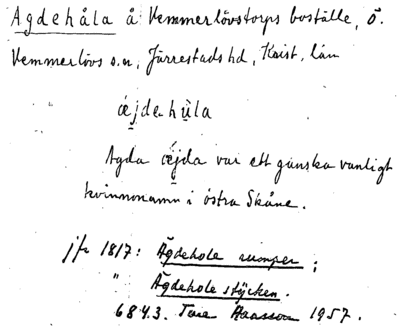 Agdehåla å Vemmerlövstorps boställe, Ö.
Vemmerlövs sn, Järrestads hd, Krist. län
æ̀jdehu̇la
Agda æ̀jda var ett ganska vanligt
kvinnonamn i östra Skåne.
jfr 1817: Ägdehole rumper ;
" Ägdehole stÿcken.
6843. Ture 1957.